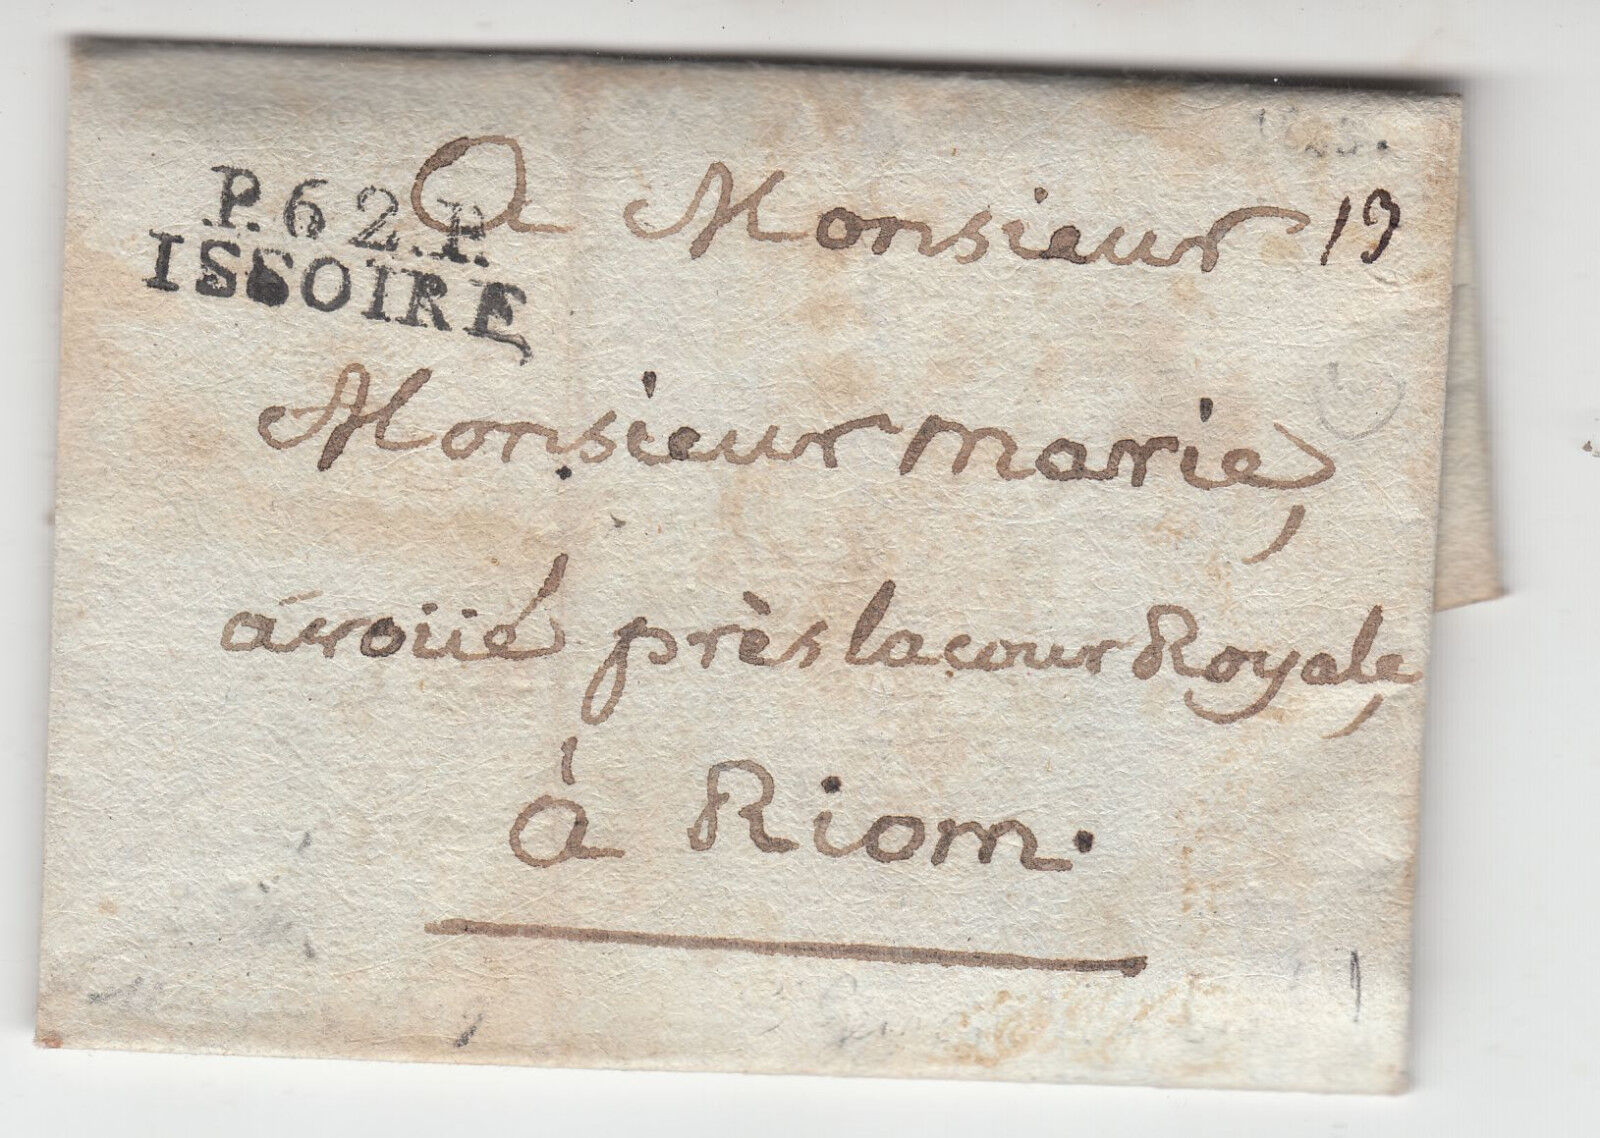 P.62.P.
ISSOIRE
A Monsieur 19
Monsieur marie,
avoüé près la cour Royale,
à Riom.